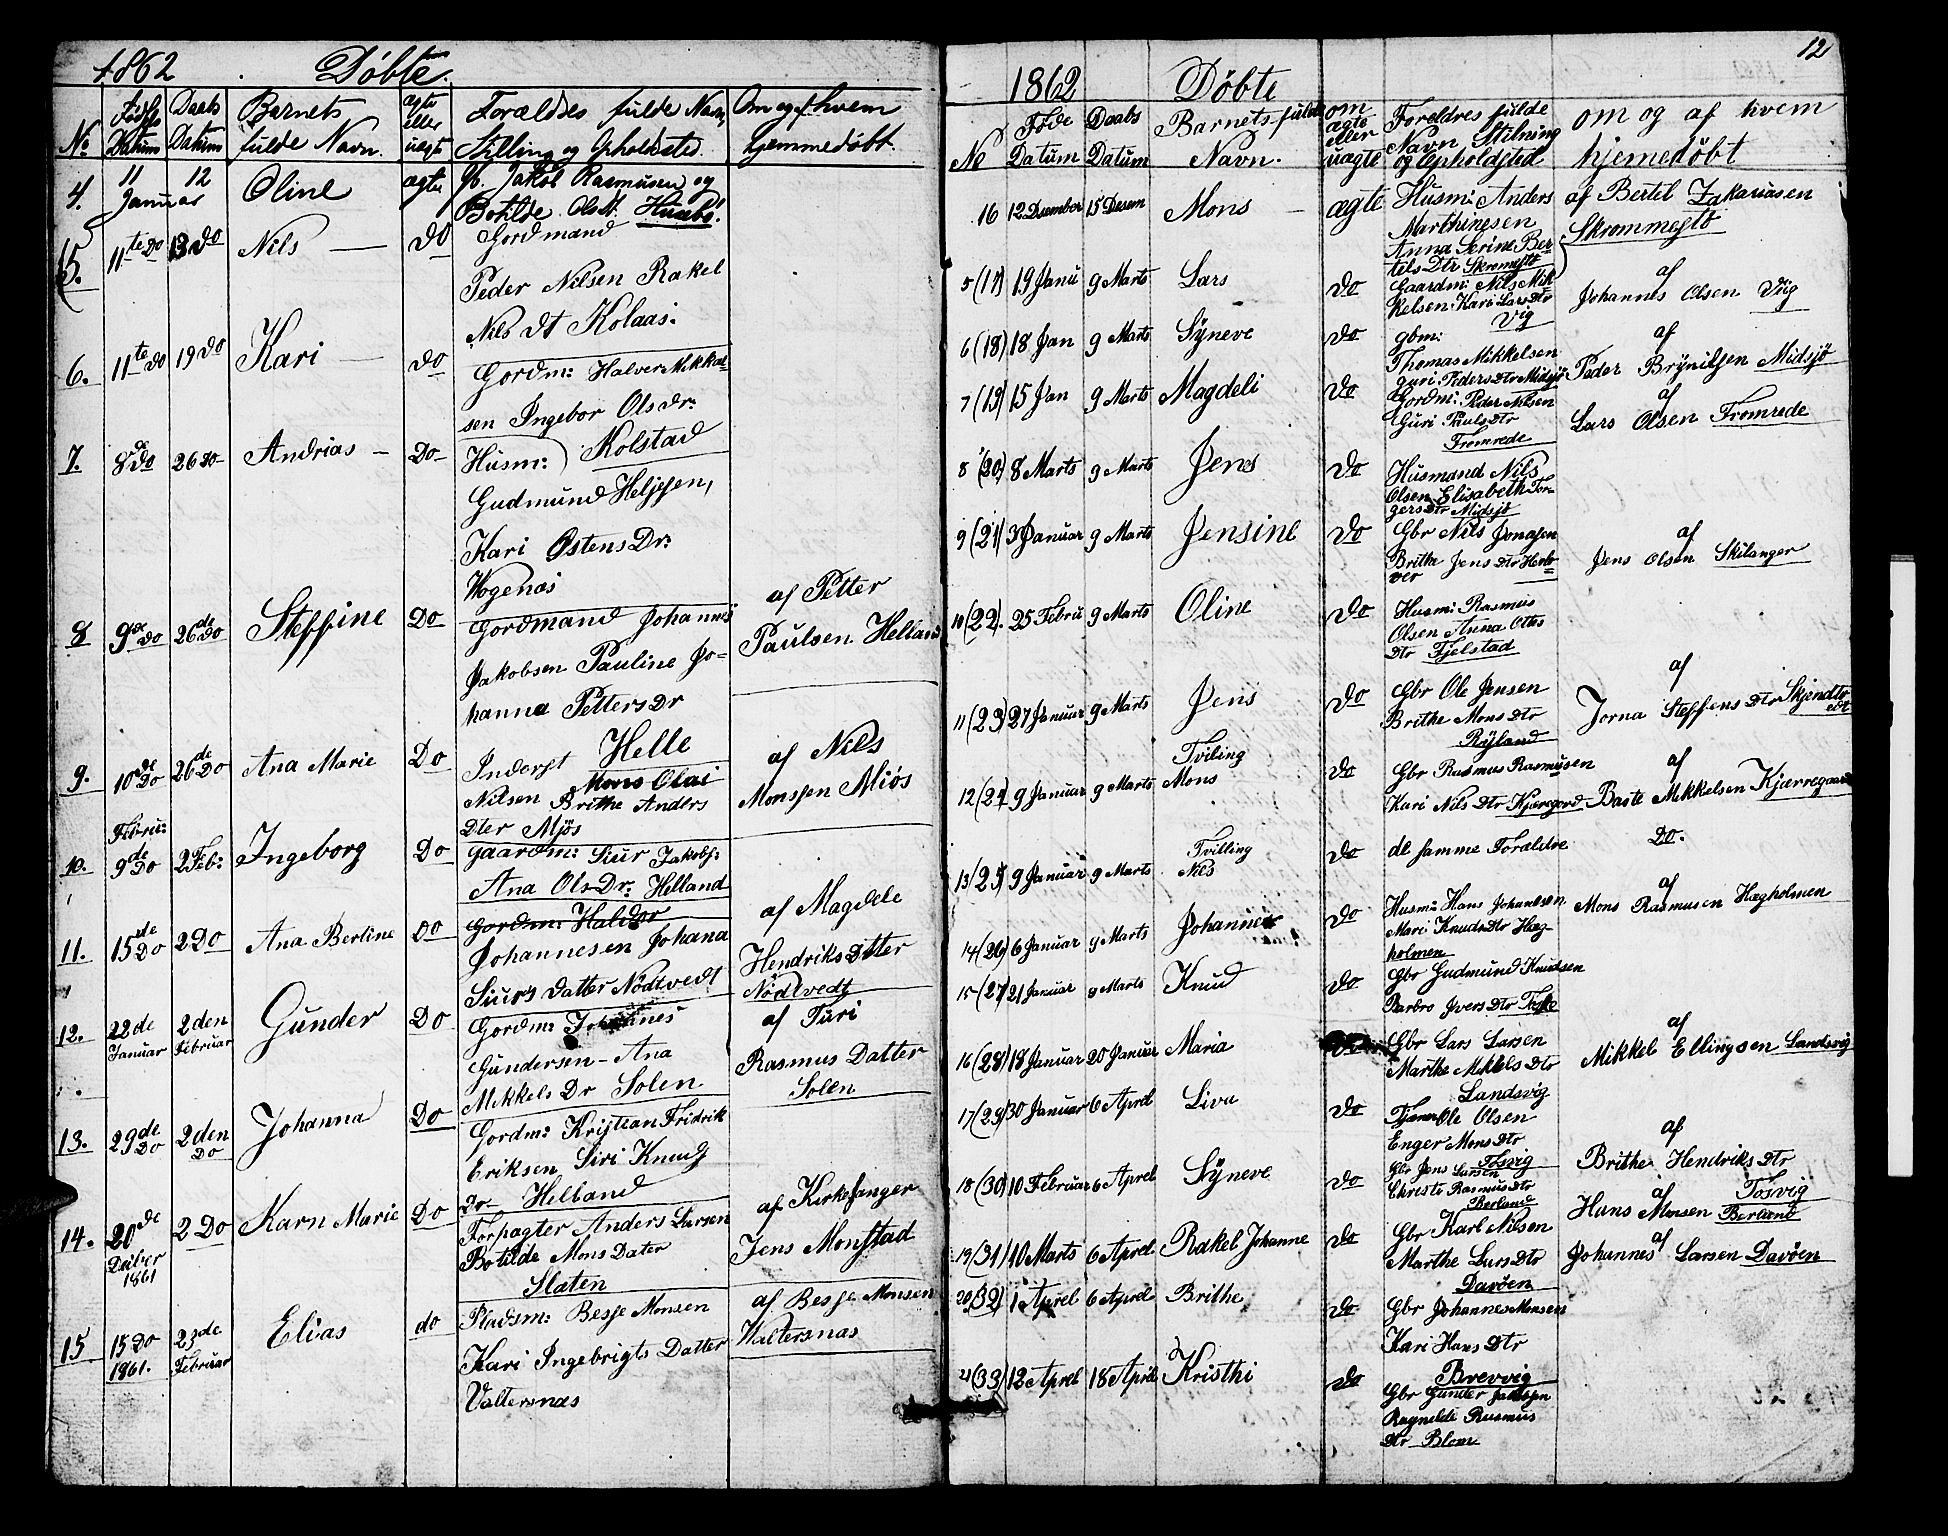 1862 Döbte.
No Föds Datum Daabs Datum Barnets fulde Navn. ægte eller uægte Forældres fulde Navn, Stilling og Opholdsted. Om og af hvem hjemmedöbt.
4. 11 Januar 12 Oline ægte Jakob Rasmusen og
Botilde Ols Husebö
5. 11te Do 13 Do Nils — do Gordmand
Peder Nilsen Rakel
Nils dt Kolaas.
6. 11te Do 19 Do Kari — do Gordm: Halver Mikkel-
sen Ingebor Olsdr.
Kolstad
7. 8de Do 26 Do Andrias — Do Husm:
Gudmund Heljesen,
Kari Østens Dr:
Wogenæs
8 9de Do 26de Do Steffine Do Gordmand Johannes
Jakobsen Pauline Jo-
hanna Petters Dr
Helle
af Petter
Paulsen Helland
9. 10de Do 26de Do Ana Marie Do Inderst Mons Olai
Nilsen Brithe Anders
Dter Mjös
af Nils
Monssen Miös
10. Febru: 9de Do 2 Feb: Ingeborg Do Gaardm: Siur Jakobs:
Ana Ols Dr: Helland
11. 15de Do 2 Do Ana Berline Do Gordm: Haldor
Johannesen Johana
Siurs Datter Nödtvedt
af Magdele
Hendriks Datter
Nödtvedt
12. 22de Januar 2den Februar Gunder Do Gordm: Johannes
Gundersen – Ana
Mikkels Dr Solen
af Turi
Rasmus Datter
Solen
13. 29de Do 2den Do Johanna Do Gordm: Kristian Fridrik
Eriksen Siri Knuds
Dr Helland
14. 20de Deiber 1861 2 Do Karn Marie Do Forpagter Anders Larsen
Botilde Mons Dater
Slaten
af Kirkesanger
Jens Monstad
15 15 Do 1861. 23de Februar Elias do Pladsm: Besse Monsen
Kari Ingebrigts Datter
Valtersnæs
af Besse Monsen
Waltersnæs
12
1862 Döbte
No Föde Datum Daabs Datum Barnets fulde Navn. om ægte eller uægte Foreldres fulde Navn Stilning og Opholdsted om og af hvem hjemedöbt
16 12 Dsember 15 Desem Mons — ægte Husm: Anders
Marthinesen
Anna Serine Ber-
tels Dtr Skromestö
af Bertel Zakariasen
Skrommestö
5 (17) 19 Janu 9 Marts Lars do Gaardm: Nils Mik
kelsen Kari Lars Dtr
Vig
af
Johannes Olsen Vig
6 (18) 18 Jan 9 Marts Syneve do gbm:
Thomas Mikkelsen
guri Peders Dtr Midsjö
af
Peder Brynildsen Midsjö
7 (19) 15 Jan 9 Marts Magdeli do Gordm: Peder Nilsen
Guri Pauls Dtr
Fromrede
af
Lars Olsen Fromrede
8 (20) 8 Marts 9 Marts Jens do Husmand Nils
Olsen Elisabeth Tor-
gers Dtr Midsjö
9 (21) 3 Januar 9 Marts Jensine do Gbr Nils Jonasen
Brithe Jens Dtr Herlö-
ver
af
Jens Olsen Skilanger
10 (22. 25 Febru 9 Marts Oline do Husm: Rasmus
Olsen Anna Ottes
Dtr Fjelstad
11 (23) 27 Januar 9 Marts Jens do Gbr Ole Jensen
Brithe Mons Dtr
Ryland
af
Jorna Steffens Dtr
12 (24 9 Januar 9 Marts Tviling
Mons do Gbr Rasmus Rasmusen
Kari Nils Dtr Kjæregord
af
Baste Mikkelsen Kjærregaard
13 (25 9 Januar 9 Marts Tvilling
Nils do de samme Forældre Do.
14 (26) 6 Januar 9 Marts Johannes do Husm: Hans Johansen
Mari Knuds Dtr Hæg
holmen
af
Mons Rasmusen Hægholmen
15 (27) 21 Januar 9 Marts Knud do Gbr Gudmund Knudsen
Barbro Ivers Dtr Toske
16 (28) 18 Januar 20 Januar Maria Do Gbr Lars Larsen
Marthe Mikkels Dtr
Landsvig
af
Mikkel Ellingsen Landsvig
17 (29) 30 Januar 6 Aprel Liva do Tjener Ole Olsen
Enger Mons Dtr
Tosvig
af
Brithe Hendriks Dtr
Tosvig
18 (30) 10 Februar 6 Aprel Syneve do Gbr Jens Larsen
Christi Rasmus Dtr
Berland
af
Hans Monsen Berland
19 (31) 10 Marts 6 Aprel Rakel Johanne do Gbr Karl Nilsen
Marthe Lars Dtr
Davöen
af
Johannes Larsen Davöen
20 (32) 1 Aprel 6 Aprel Brithe do Gbr Johannes Monsen
Kari Hans Dtr
Brevvig
21 (33) 12 Aprel 18 Aprel Kristhi do Gbr Gunder Jakobsen
Ragnilde Rasmus
Dtr Blom